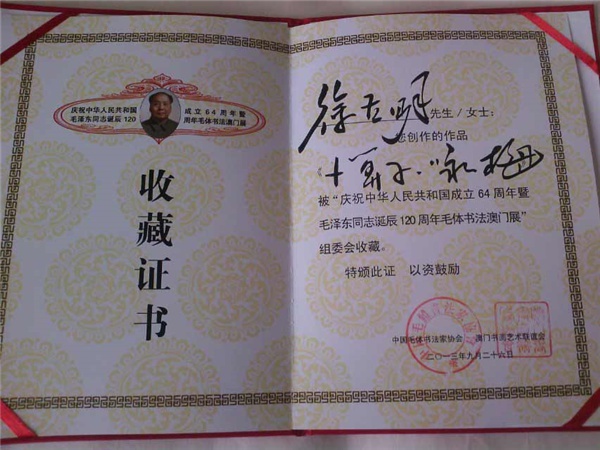 庆祝中华人民共和国 成立64周年暨
毛泽东同志诞辰120 周年毛体书法澳门展
收藏证书
先生/女士：
您创作的作品
《卜算子·咏梅》
被“庆祝中华人民共和国成立64周年暨
毛泽东同志诞辰120周年毛体书法澳门展”
组委会收藏。
特颁此证 以资鼓励
中国毛体书法家协会 澳门书画艺术联谊会
二〇一三年九月二十六日